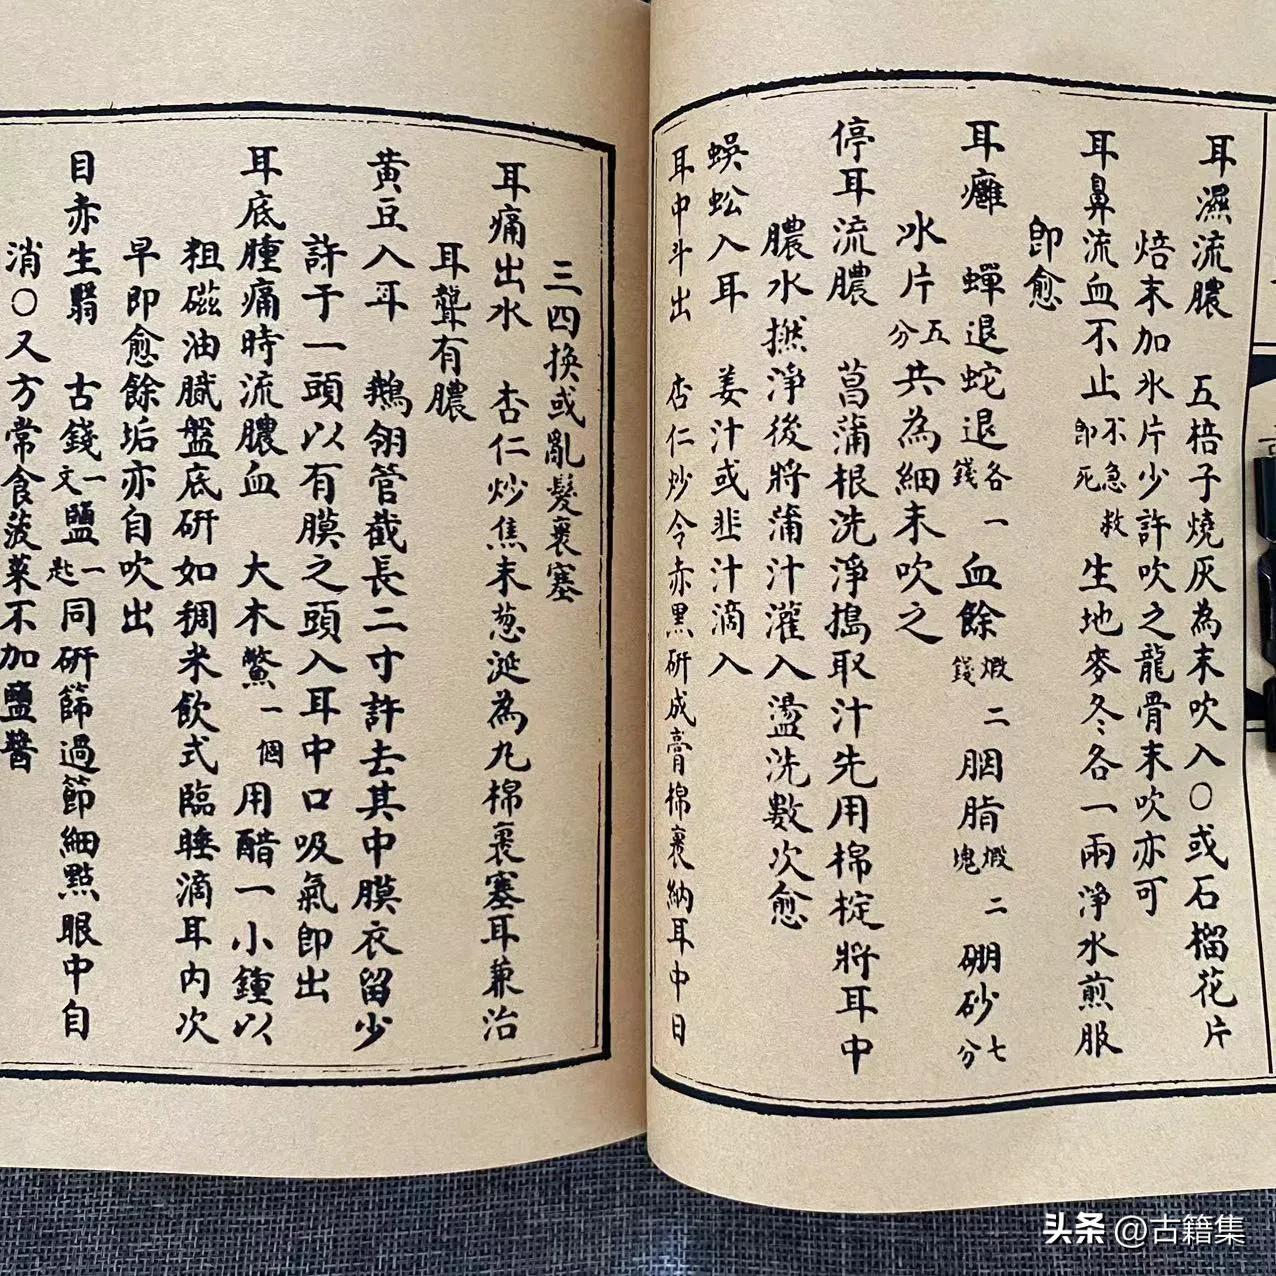 耳濕流膿　五棓子燒灰為末吹入○或石榴花片
焙末加氷片少許吹之龍骨末吹亦可
耳鼻流血不止不急救即死生地麥冬各一兩淨水煎服
即愈
耳癰　蟬退蛇退各一錢血餘煅二錢胭脂煅二塊硼砂七分
氷片五分共為細末吹之
停耳流膿　菖蒲根洗淨搗取汁先用棉椗將耳中
膿水撚淨後將蒲汁灌入盪洗數次愈
蜈蚣入耳　姜汁或韭汁滴入
耳中斗出　杏仁炒令赤黑研成膏棉裹納耳中日
三四換或亂髮裹塞
耳痛出水　杏仁炒焦末葱涎為丸棉裹塞耳兼治
耳聾有膿
黃豆入耳　鵝翎管截長二寸許去其中膜衣留少
許于一頭以有膜之頭入耳中口吸氣即出
耳底腫痛時流膿血　大木鱉一個用醋一小鐘以
粗磁油膱盤底研如稠米飲式臨睡滴耳內次
早即愈餘垢亦自吹出
目赤生翳　古錢一文鹽一匙同研篩過節細點眼中自
消○又方常食菠菜不加鹽醬
头条 @古籍集